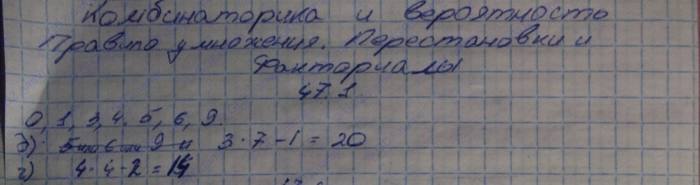 Комбинаторика и вероятность
Правило умножения. Перестановки и
факториалы
47.1
0, 1, 3, 4, 5, 6, 9
в) 3·7-1=20
г) 4·4-2=14